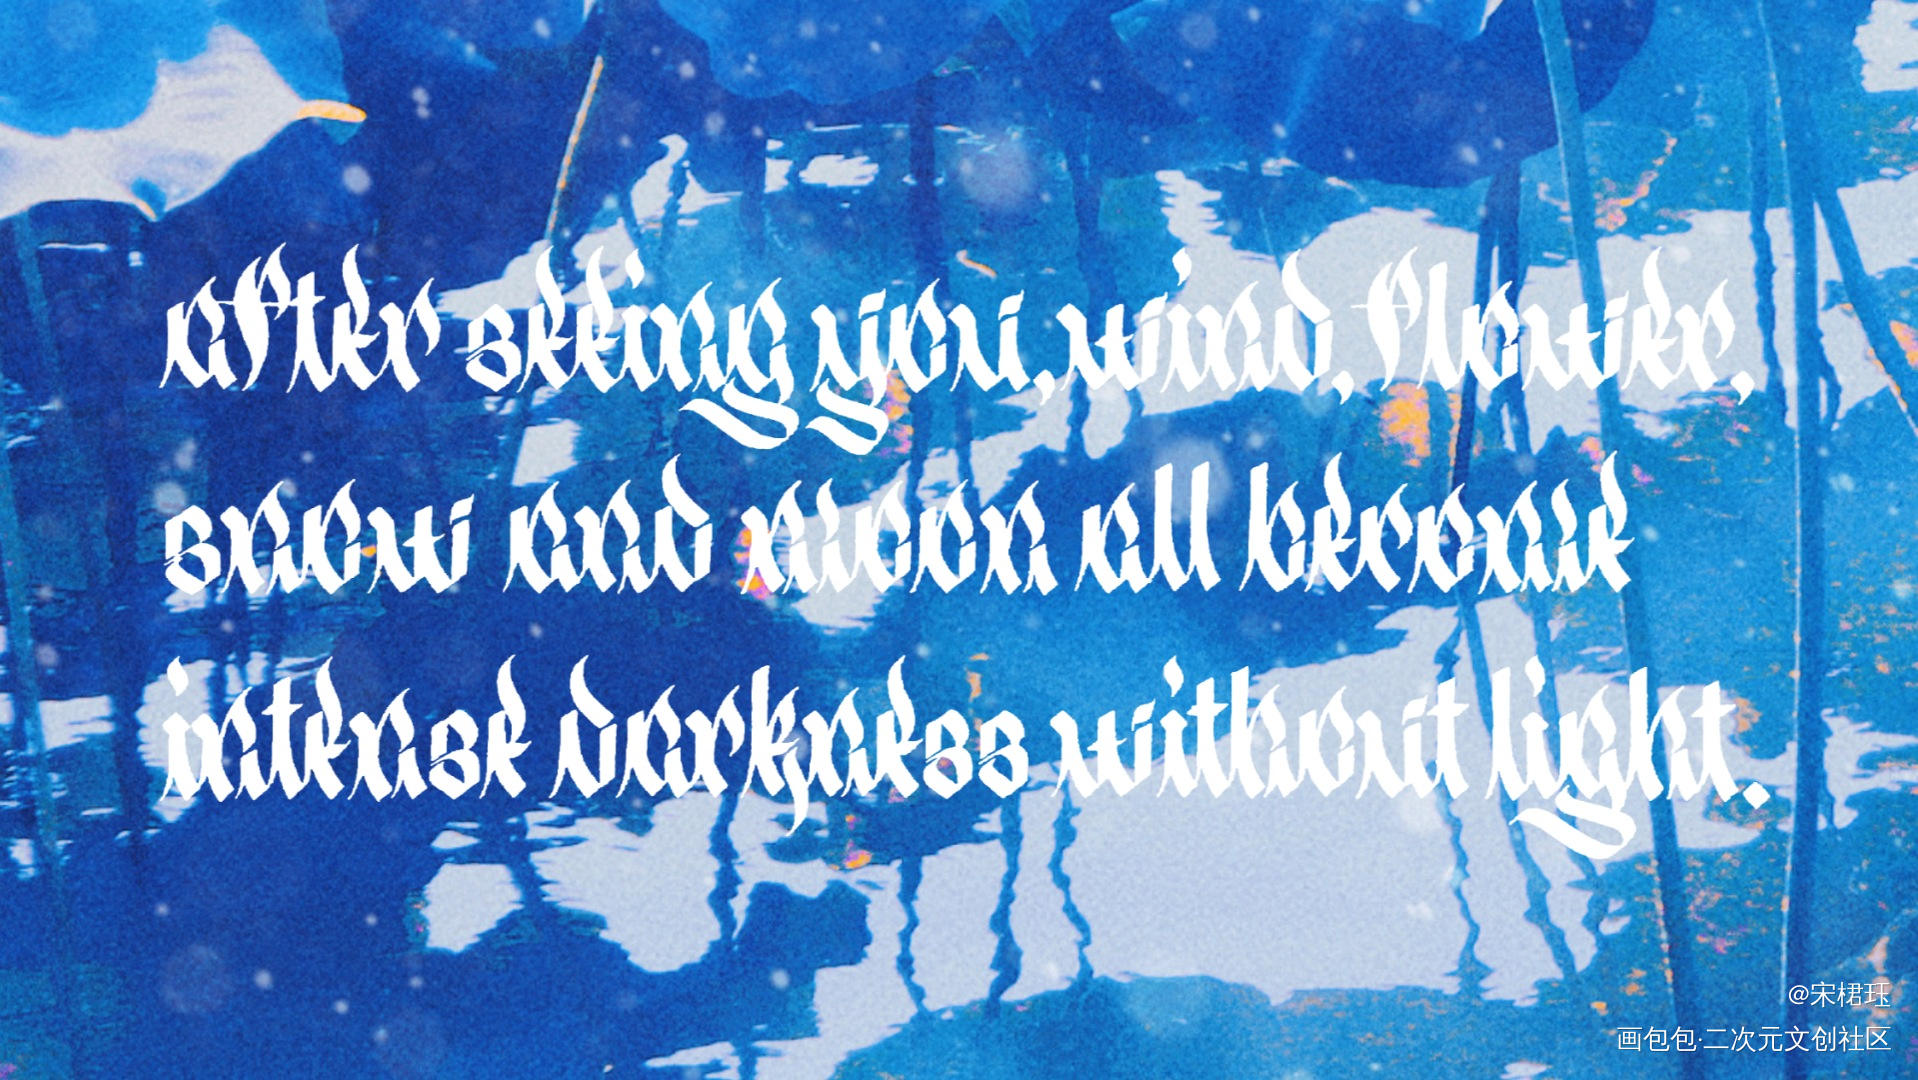 after seeing you, wind, flower,
snow and moon all become
intense darkness without light.
@宋桾珏
画包包·二次元文创社区